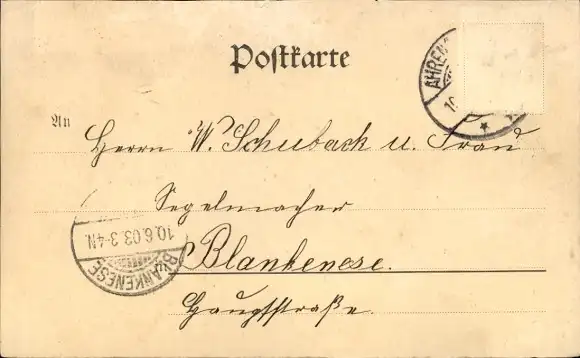 Postkarte
AHREN
10
An
Herrn W. Schuback u. Frau
Segelmacher
Blankenese.
Hauptstraße.
BLANKENESE
10.6.03.3-4N.